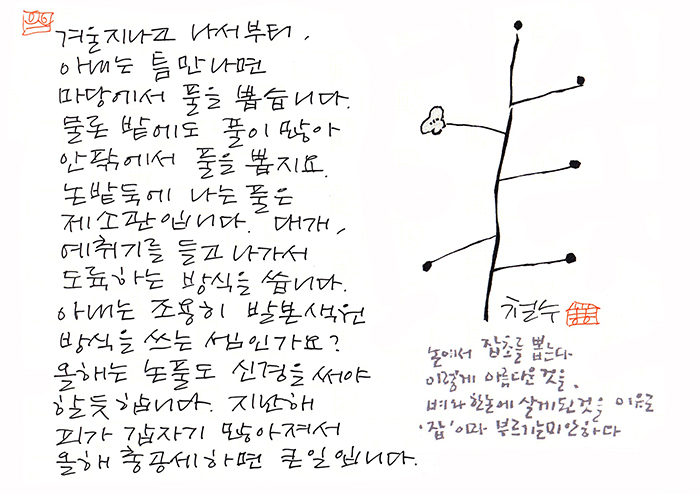 겨울지나고 나서부터,
아내는 틈만나면
마당에서 풀을 뽑습니다.
물론 밭에도 풀이 많아
안팎에서 풀을 뽑지요.
논밭둑에 나는 풀은
제소관입니다. 대개,
예취기를 들고 나가서
도륙하는 방식을 씁니다.
아내는 조용히 발본색원
방식을 쓰는 셈인가요?
올해는 논풀도 신경을 써야
할듯합니다. 지난해
피가 갑자기 많아져서
올해 총공세하면 큰일입니다.
철수
논에서 잡초를 뽑는다
이렇게 아름다운 것을,
벼와 한논에 살게된 것을 이유로
'잡'이라 부르기는 미안하다